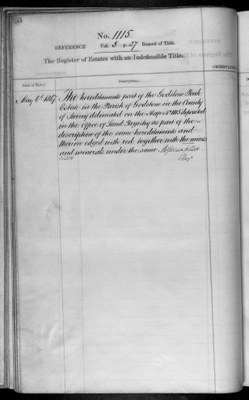 No. 1115.
REFERENCE Vol. 3. p. 27 Record of Title.
The Register of Estates with an Indefeasible Title.
Date of Entry. Description.
May 6th 1867 The hereditaments part of the Godstone Park
Estate in the Parish of Godstone in the County
of Surrey delineated on the Map No. 1115 deposited
in the Office of Land Registry as part of the
description of the same hereditaments and
therein edged with red together with the mines
and minerals under the same